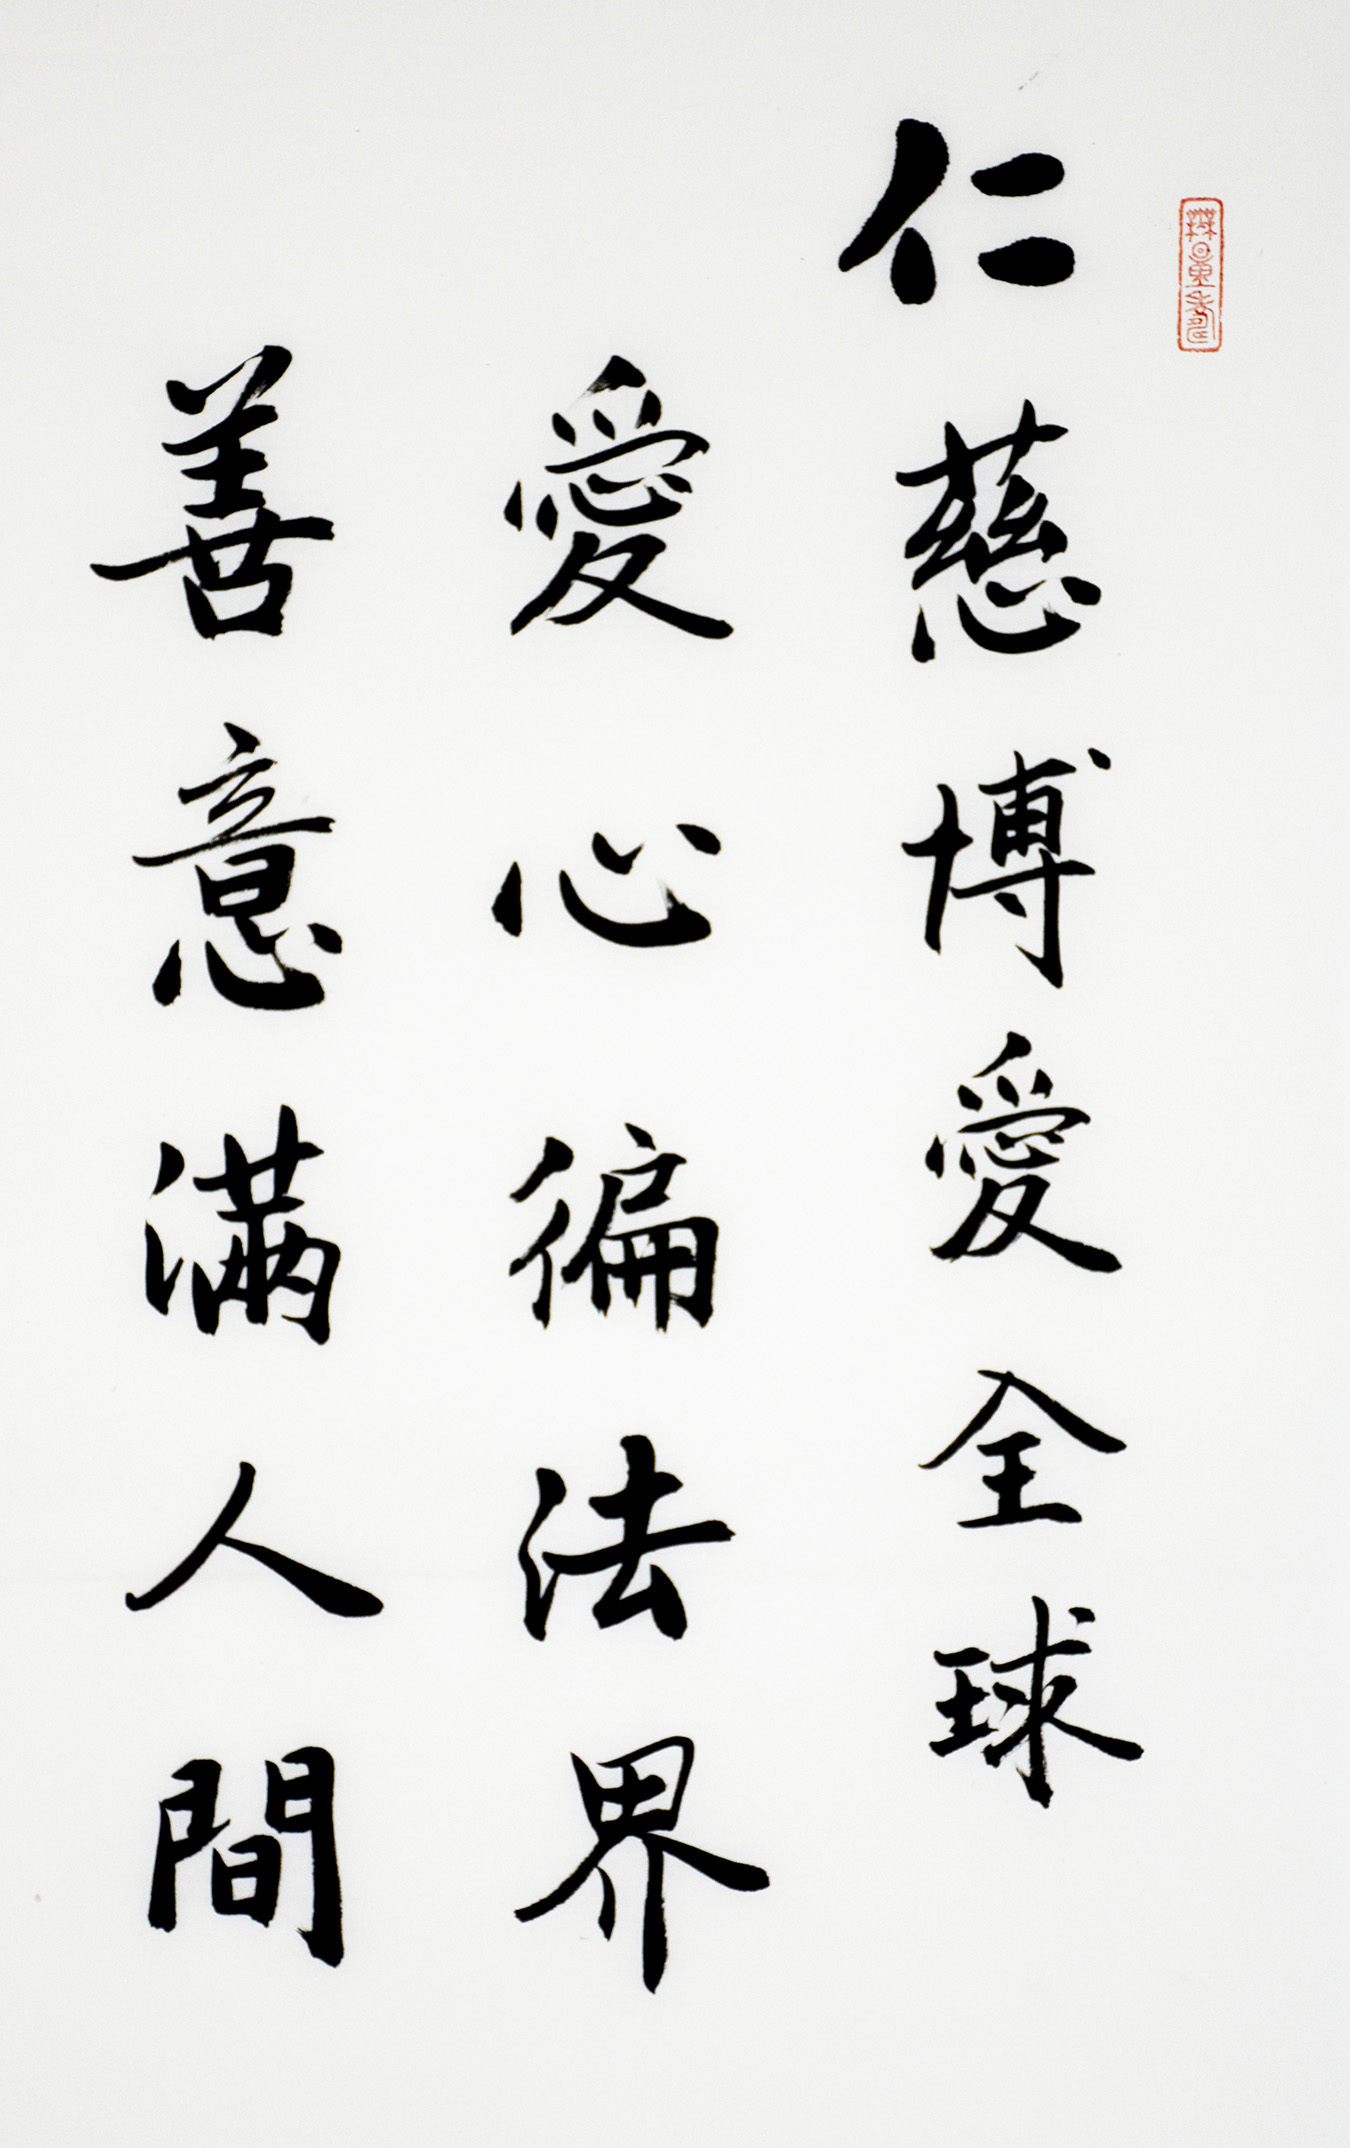 仁慈博愛全球
愛心徧法界
善意滿人間
無量壽